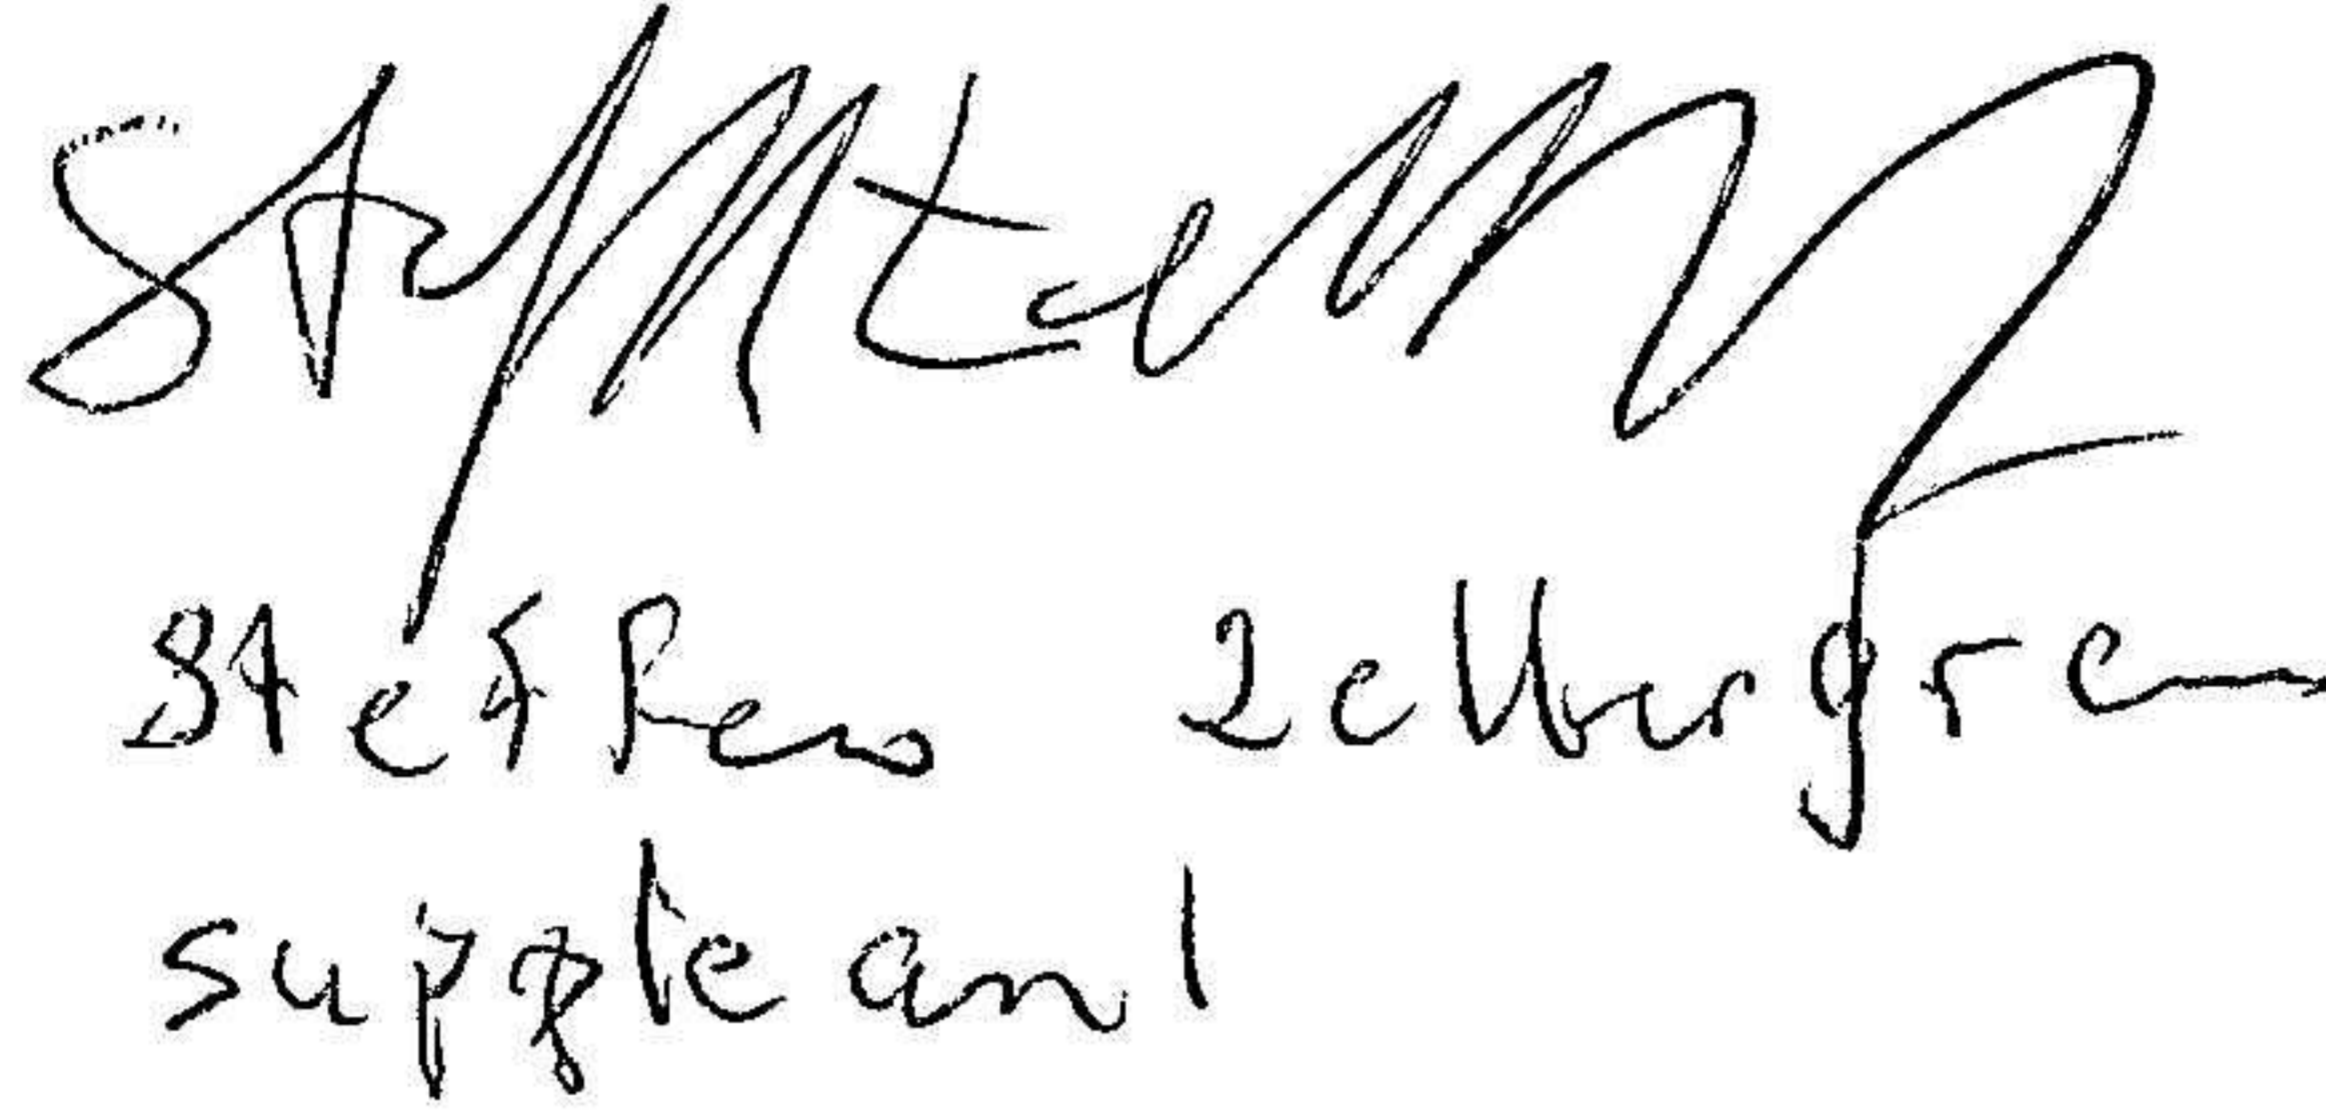 Steffen Zellbergren
suppleant